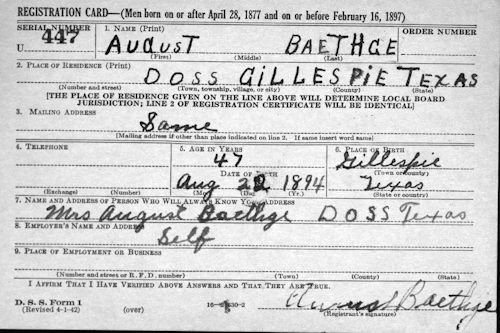 REGISTRATION CARD—(Men born on or after April 28, 1877 and on or before February 16, 1897)
SERIAL NUMBER 1. NAME (Print) ORDER NUMBER
U 447 AUGUST BAETHGE
(First) (Middle) (Last)
2. PLACE OF RESIDENCE (Print)
DOSS GILLESPIE TEXAS
(Number and street) (Town, township, village, or city) (County) (State)
[THE PLACE OF RESIDENCE GIVEN ON THE LINE ABOVE WILL DETERMINE LOCAL BOARD
JURISDICTION; LINE 2 OF REGISTRATION CERTIFICATE WILL BE IDENTICAL]
3. MAILING ADDRESS
Same
[Mailing address if other than place indicated on line 2. If same insert word same]
4. TELEPHONE 5. AGE IN YEARS 6. PLACE OF BIRTH
47 Gillespie
DATE OF BIRTH (Town or county)
Aug 22 1894 Texas
(Exchange) (Number) (Mo.) (Day) (Yr.) (State or country)
7. NAME AND ADDRESS OF PERSON WHO WILL ALWAYS KNOW YOUR ADDRESS
Mrs August Baethge DOSS Texas
8. EMPLOYER'S NAME AND ADDRESS
Self
9. PLACE OF EMPLOYMENT OR BUSINESS
(Number and street or R. F. D. number) (Town) (County) (State)
I AFFIRM THAT I HAVE VERIFIED ABOVE ANSWERS AND THAT THEY ARE TRUE.
D. S. S. Form 1
(Revised 4-1-42) (over) August Baethge
(Registrant's signature)